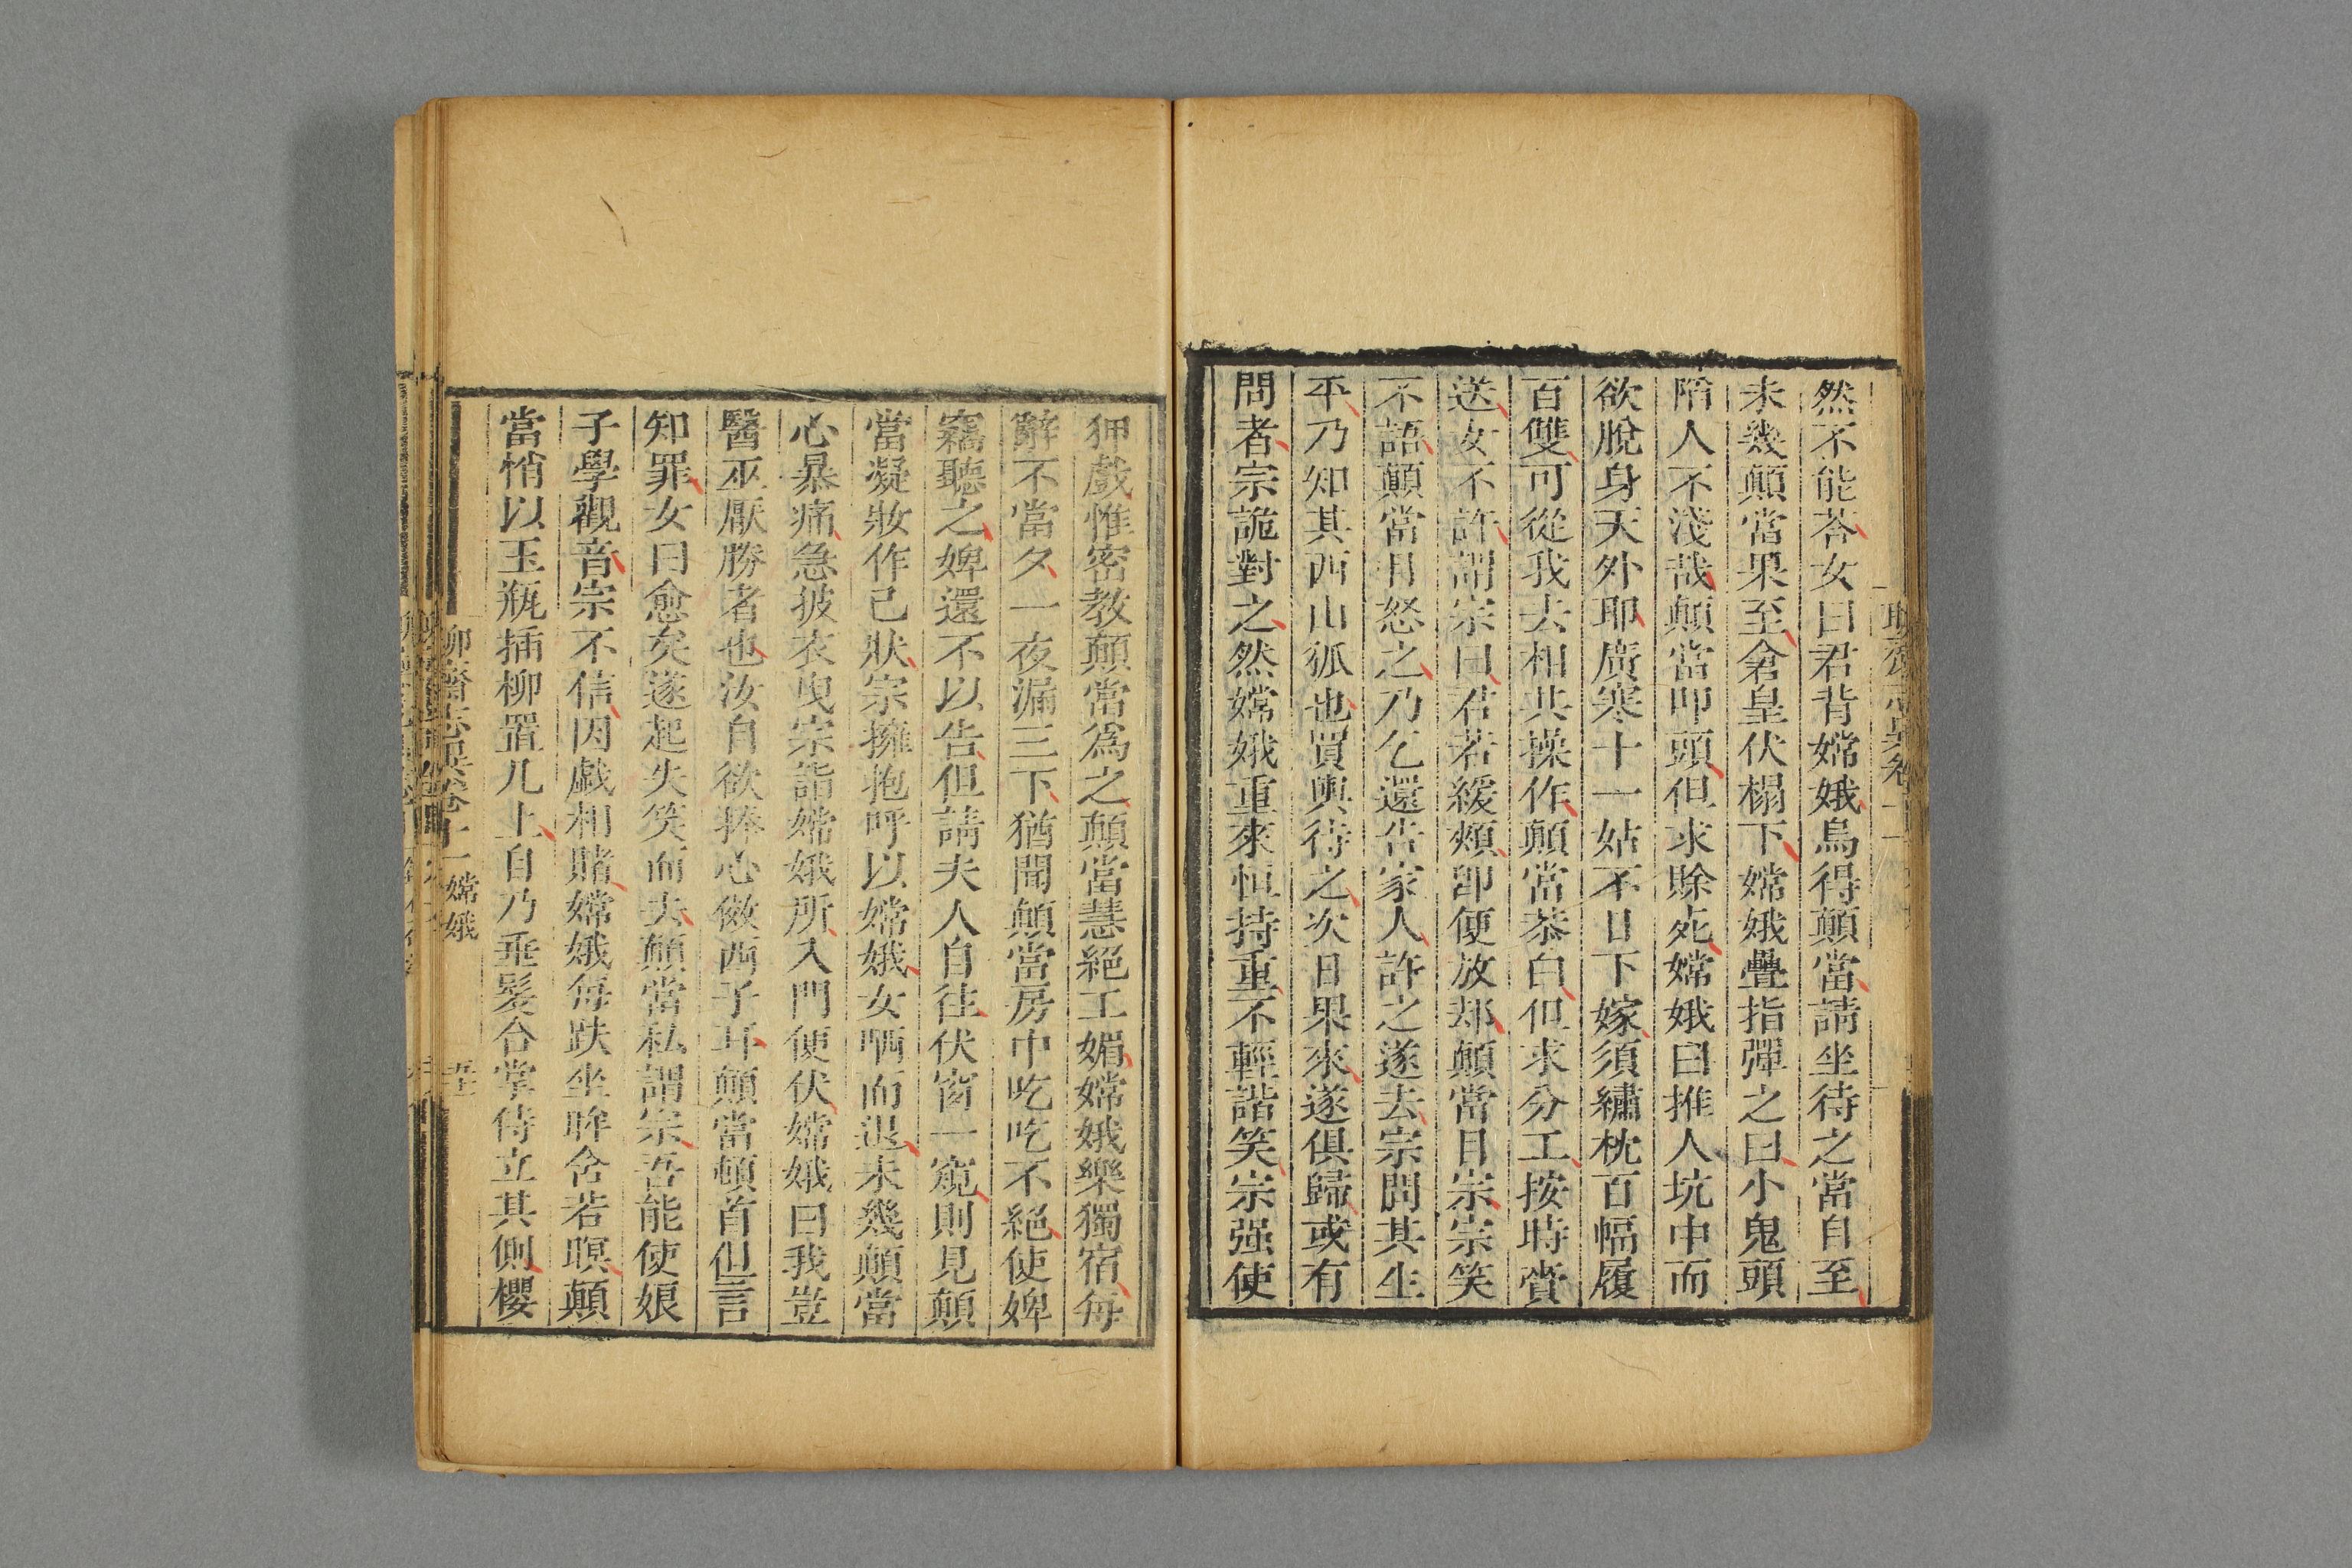 然不能荅女曰君背嫦娥烏得顛當請坐待之當自至
未幾顛當果至倉皇伏榻下嫦娥疊指彈之曰小鬼頭
陷人不淺哉顛當叩頭但求賒死嫦娥曰推人坑中而
欲脫身天外耶廣寒十一姑不日下嫁須繡枕百幅履
百雙可從我去相共操作顛當恭白但求分工按時賫
送女不許謂宗曰君若緩頰卽便放却顛當目宗宗笑
不語顛當目怒之乃乞還告家人許之遂去宗問其生
平乃知其西山狐也買輿待之次日果來遂俱歸或有
問者宗詭對之然嫦娥重來恒持重不輕諧笑宗强使
狎戲惟密教顛當爲之顛當慧絕工媚嫦娥樂獨宿每
辭不當夕一夜漏三下猶聞顛當房中吃吃不絕使婢
竊聽之婢還不以告但請夫人自往伏窗一窺則見顛
當凝妝作己狀宗擁抱呼以嫦娥女哂而退未幾顛當
心暴痛急披衣曳宗詣嫦娥所入門便伏嫦娥曰我豈
醫巫厭勝者也汝自欲捧心傚西子耳顛當頓首但言
知罪女曰愈矣遂起失笑而去顛當私謂宗吾能使娘
子學觀音宗不信因戲相賭嫦娥每趺坐眸含若瞑顛
當悄以玉瓶插柳置几上自乃垂髮合掌侍立其側櫻
聊齋志異卷十一 嫦娥